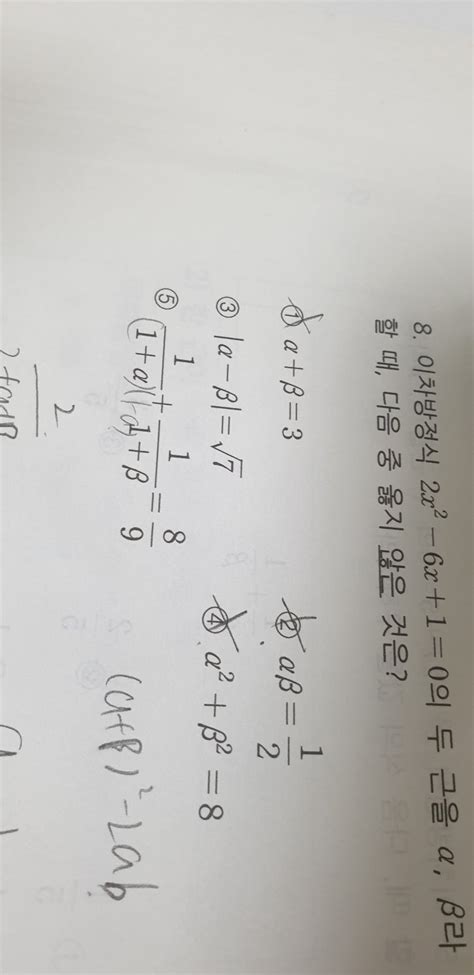 8. 이차방정식 2x² - 6x + 1 = 0의 두 근을 α, β라
할 때, 다음 중 옳지 않은 것은?
① α + β = 3
② αβ = 1/2
③ |α - β| = √7
④ α² + β² = 8
⑤ 1/(1 + α) + 1/(1 + β) = 8/9
(α+β)² - 2αb
2